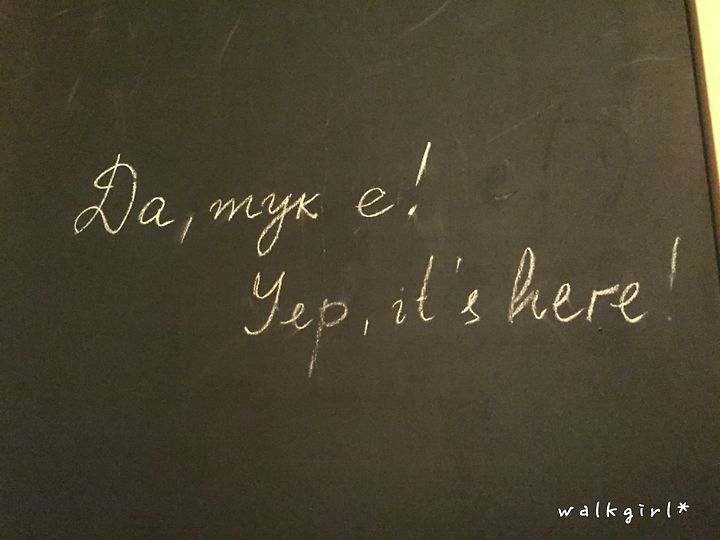 Да, тук е!
Yep, it's here!
walkgirl*